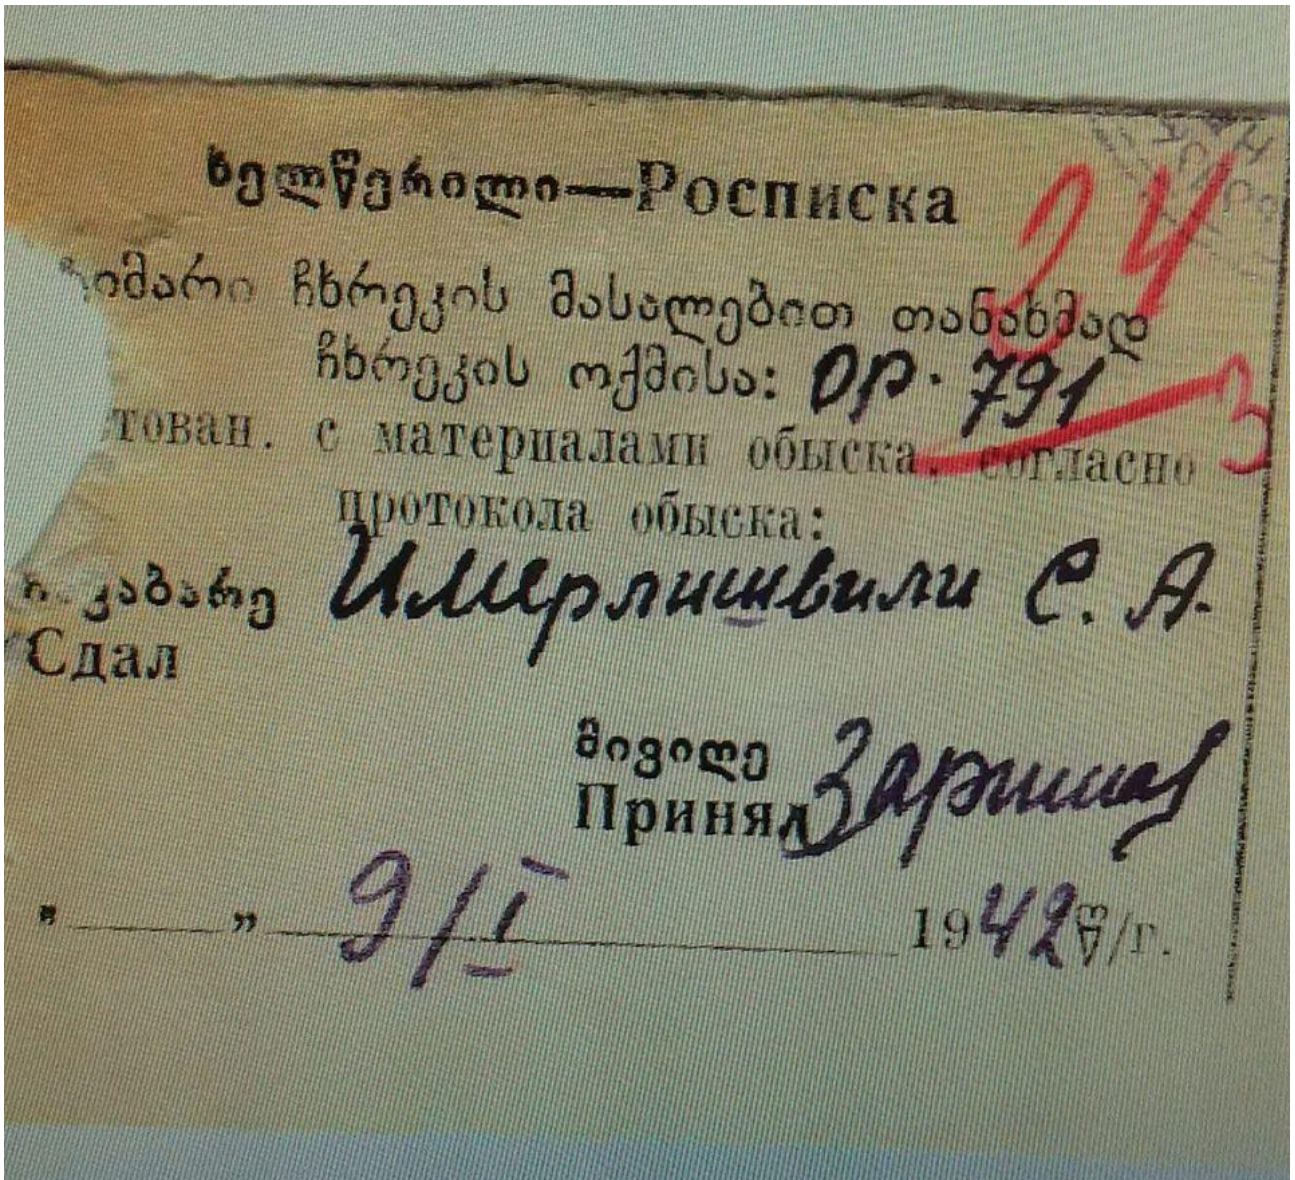 ხელწერილი—Росписка
24
იმარი ჩხრეკის მასალებით თანახმად
ჩხრეკის ოქმისა: ор. 791
3
тован. с материалами обыска, согласно
протокола обыска:
ჩ. კაბარე Имерлишвили С. А.
Сдал
მივიღე
Принял
„ „ 9/I 1942 წ/г.